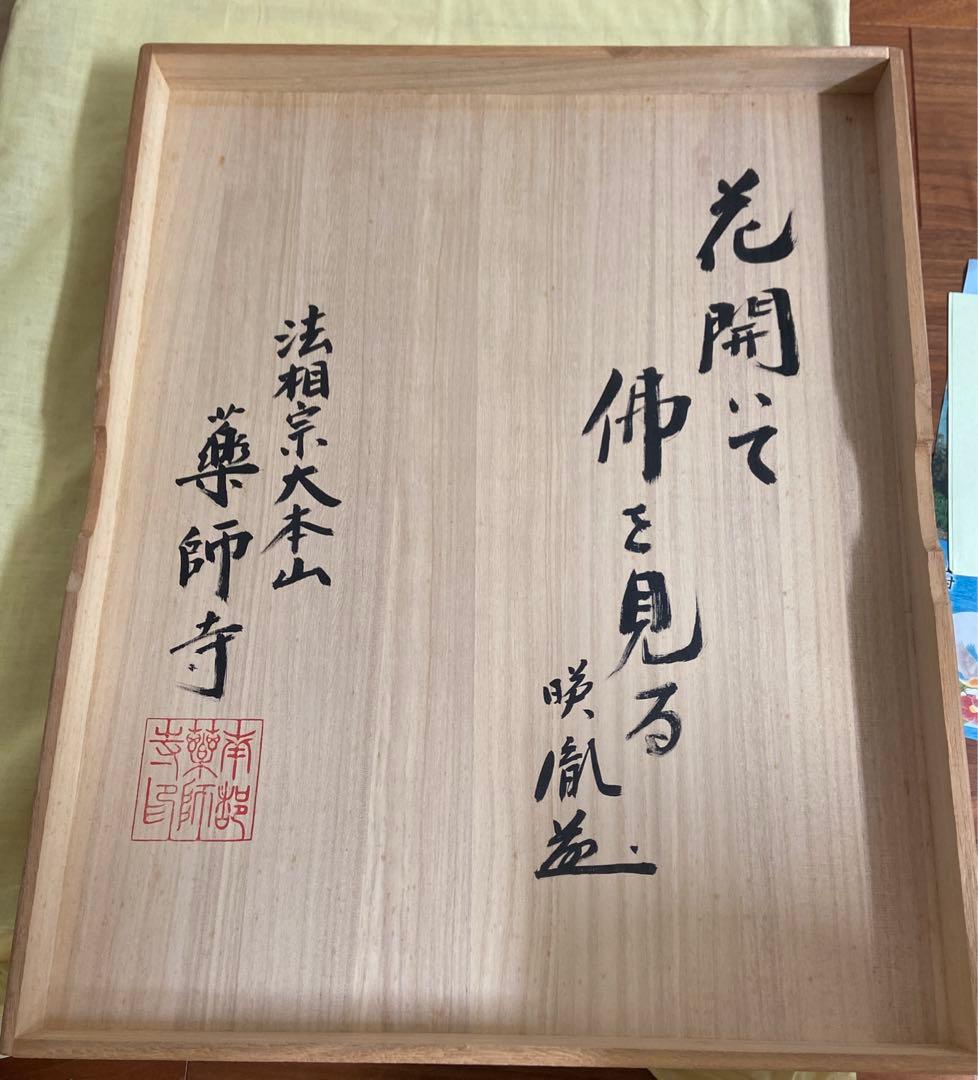 花開いて
佛を見る
暎胤並
法相宗大本山
藥師寺
南都
藥師
寺印